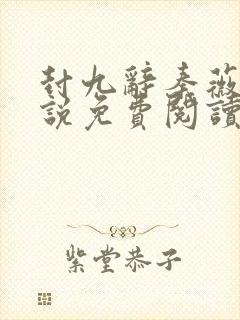 封九辭秦薇
說免費閱讀
紫堂恭子